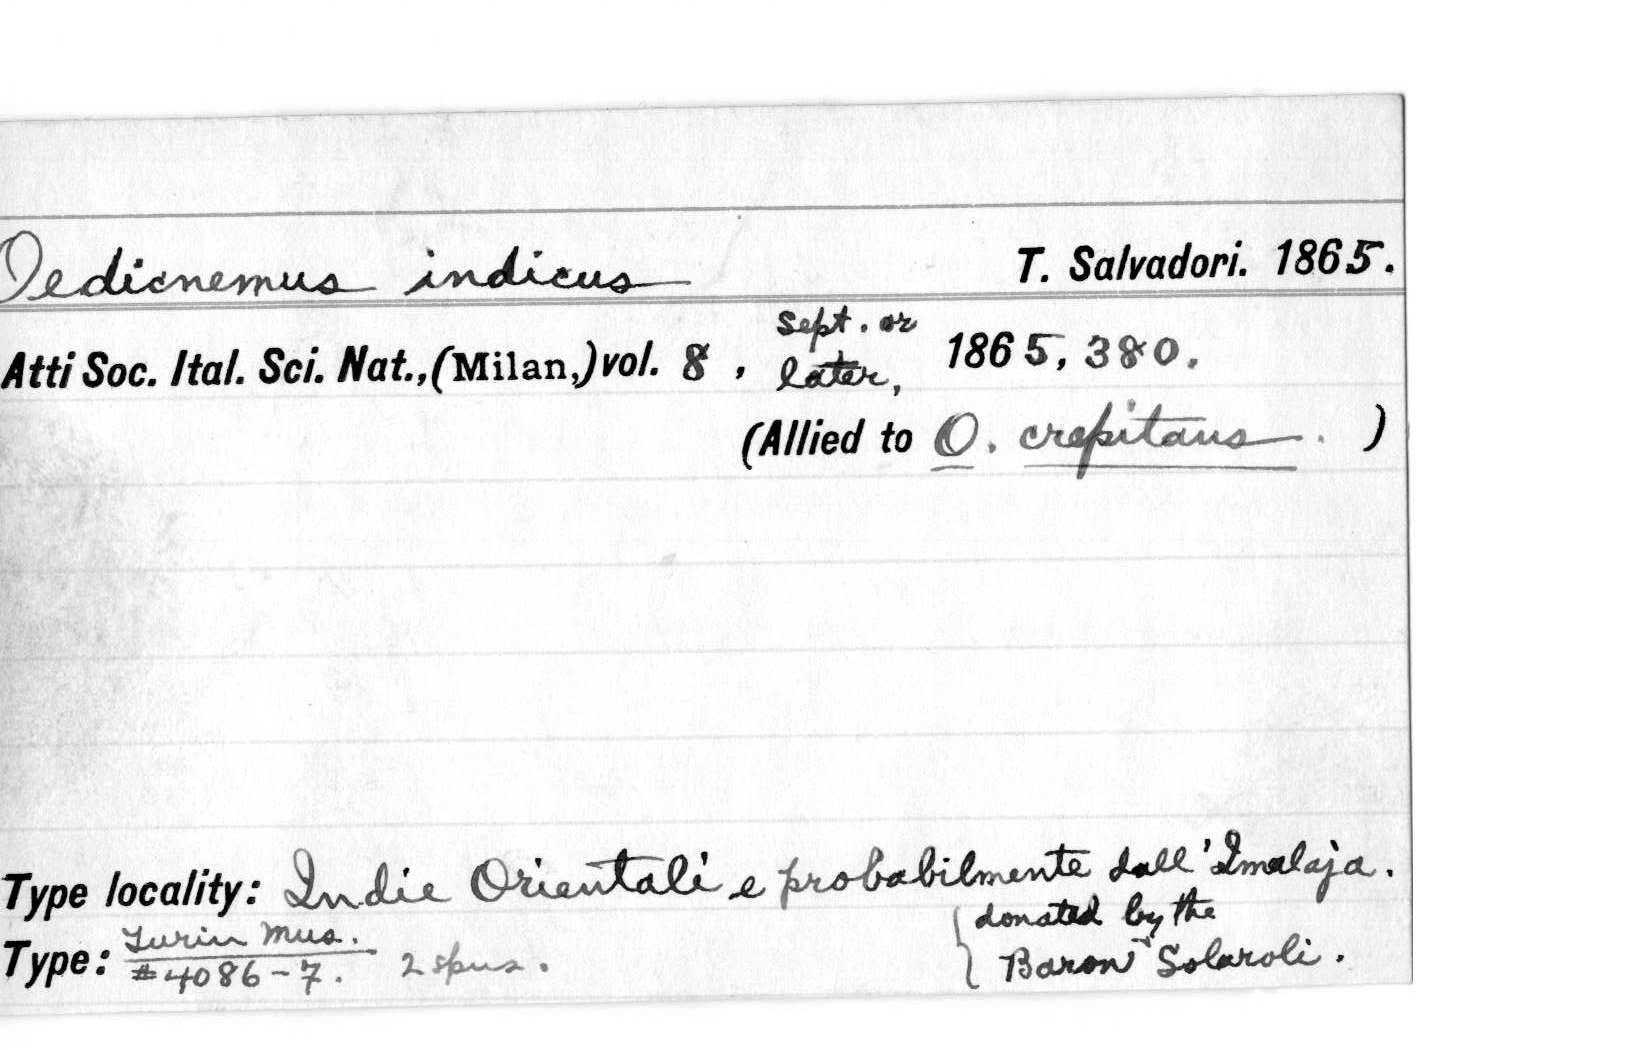 Oedicnemus indicus T. Salvadori. 1865.
Atti Soc. Ital. Sci. Nat., (Milan,) vol. 8, Sept. or later, 1865, 380.
(Allied to O. crepitans. )
Type locality: Indie Orientali e probabilmente dall' Imalaja.
{ donated by the
Baron Solaroli.
Type: Turin Mus.
#4086-7. 2 spns.